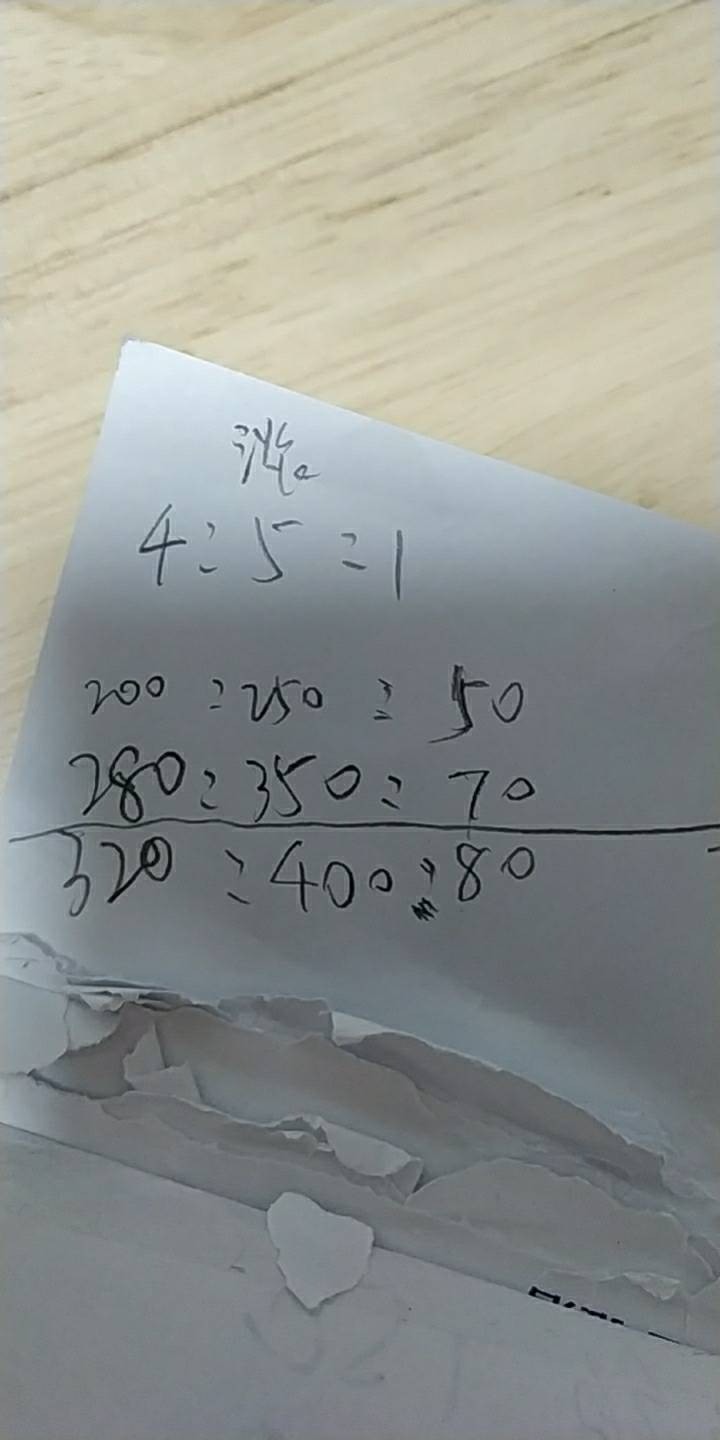 4:5:1
200:250:50
280:350:70
320:400:80